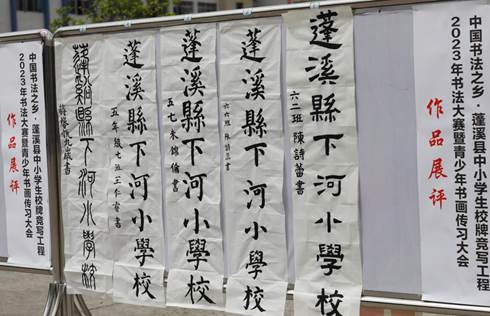 中国书法之乡·蓬溪县中小学生校牌竞写工程
2023年书法大赛暨青少年书画传习大会
作品展评
蓬溪縣下河小學校
六二班 陳詩蕾書
蓬溪縣下河小學校
六六班 陳詩三書
蓬溪縣下河小學校
五七 米錦倫書
蓬溪縣下河小學校
五年級七班王仁睿書
蓬溪縣下河小學校
九歲書
中国书法之乡·蓬溪县中小学生校牌竞写工程
2023年书法大赛暨青少年书画传习大会
作品展评